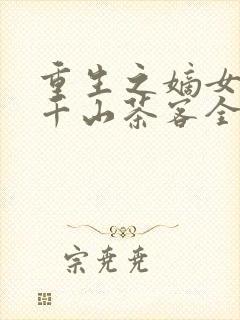 重生之嫡女
千山茶客全
宗尭尭